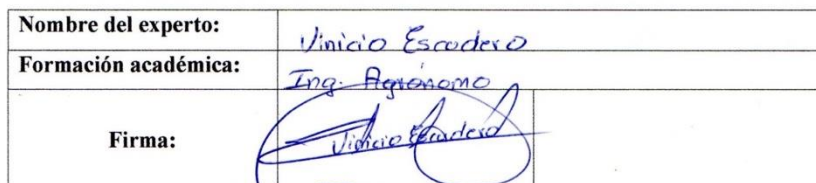 Nombre del experto: Vinicio Escudero
Formación académica: Ing. Agrónomo
Firma: Vinicio Escudero